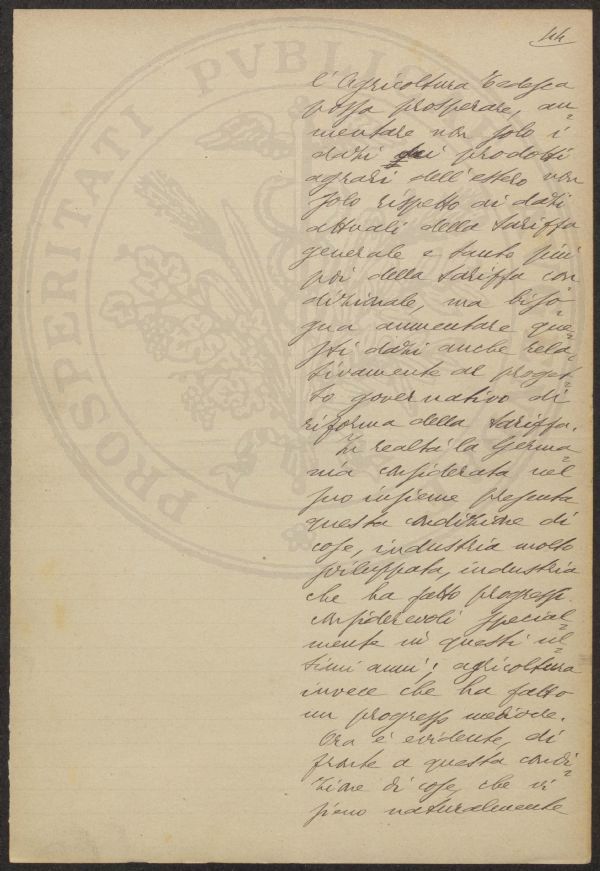 44
l'Agricoltura Tedesca
possa prosperare, au=
mentare non solo i
dazi sui prodotti
agrari dell'estero non
solo rispetto ai dazi
attuali della tariffa
generale e tanto più
poi della tariffa con
dizionale, ma biso=
gna aumentare que=
sti dazi anche rela=
tivamente al proget=
to governativo di
riforma della tariffa.
In realtà la Germa=
nia considerata nel
suo insieme presenta
questa condizione di
cose, industria molto
sviluppata, industria
che ha fatto progressi
considerevoli special=
mente in questi ul=
timi anni; agricoltura
invece che ha fatto
un progresso mediocre.
Ora è evidente, di
fronte a questa condi=
zione di cose, che vi
sieno naturalmente
PROSPERITATI PVBLIC